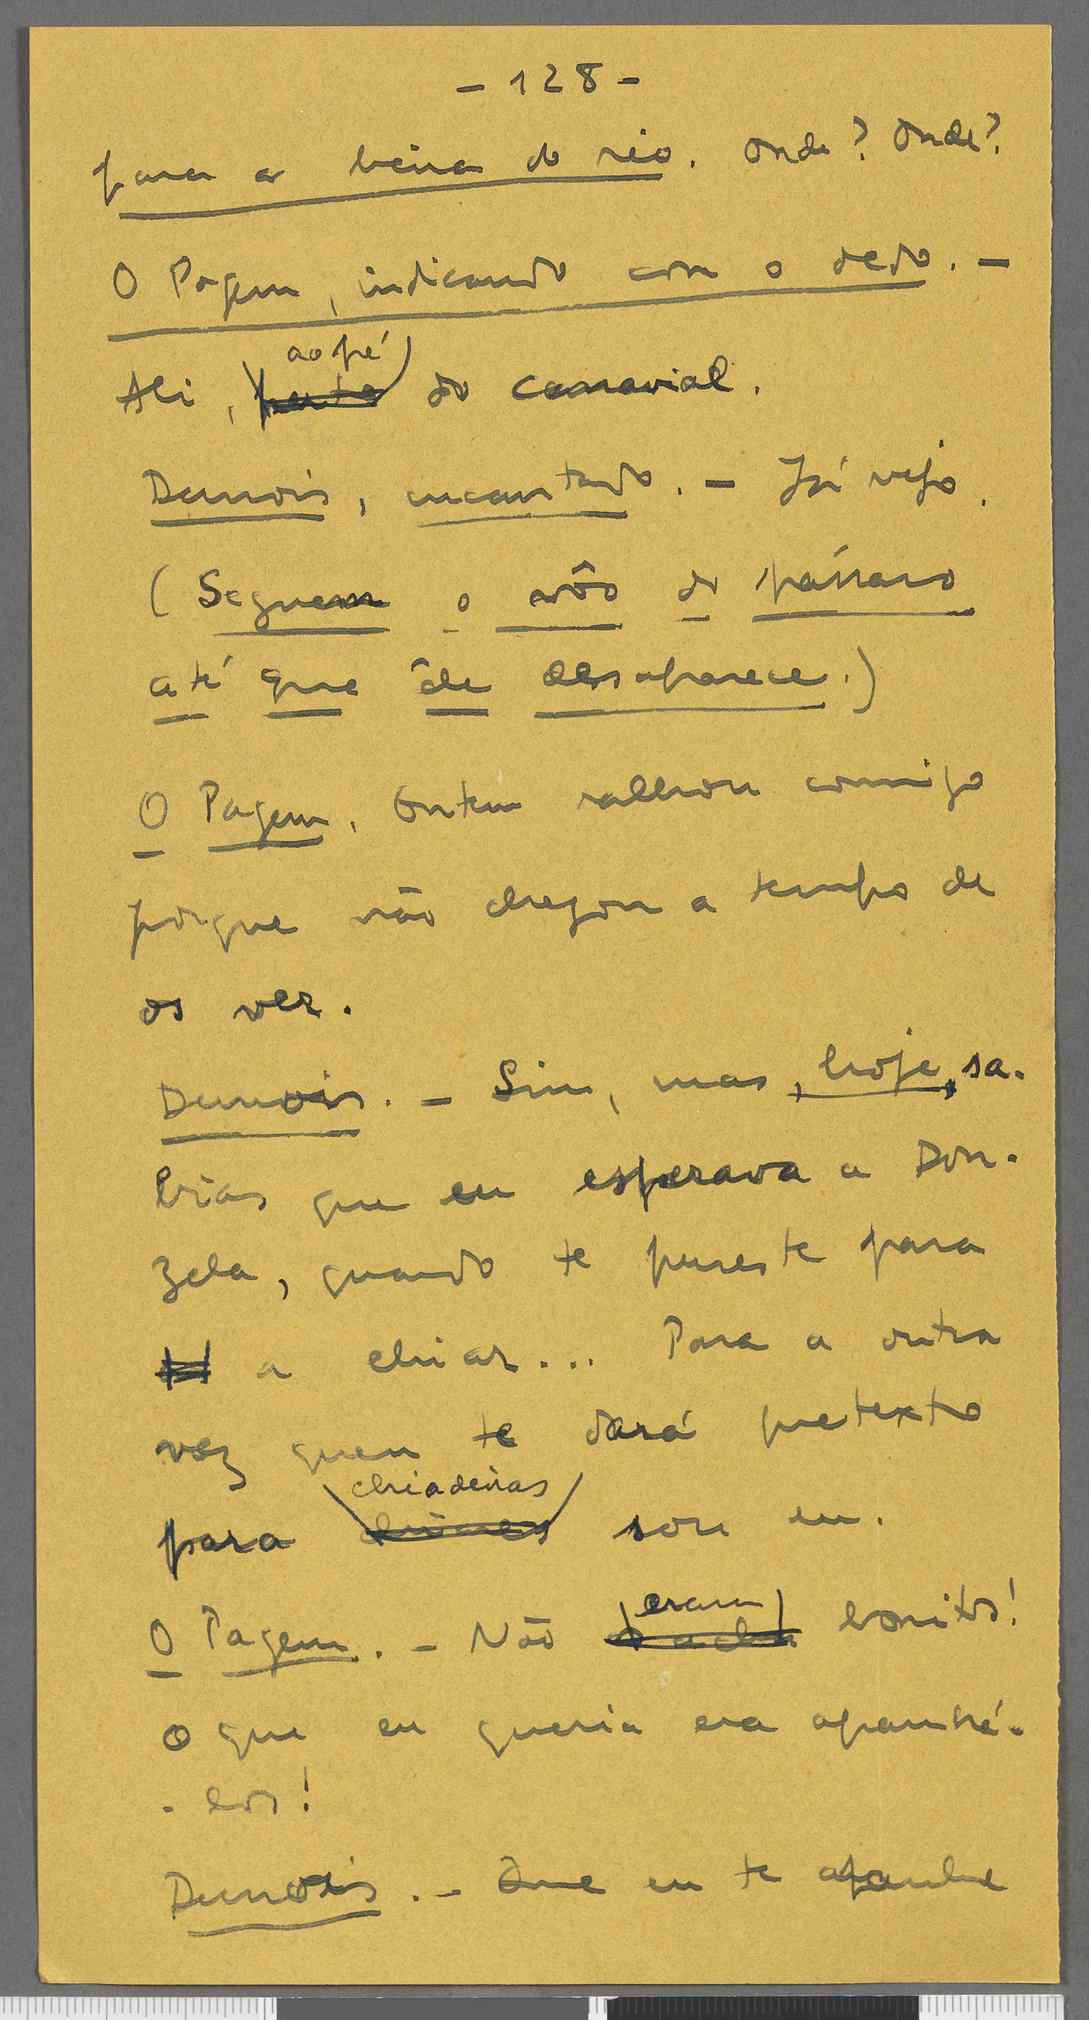 - 128 -
para a beira do rio. Onde? Onde?
O Pagem, indicando com o dedo. -
ao pé
Ali, perto do canavial.
Dunois, encantado. - Já vejo.
(Seguem o vôo do pássaro
até que êle desaparece.)
O Pagem. Ontem ralhou comigo
porque não chegou a tempo de
os ver.
Dunois. - Sim, mas, hoje, sa-
bias que eu esperava a Don-
zela, quando te puseste para
a chiar... Para a outra
vez quem te dará pretexto
chiadeiras
para sou eu.
eram
O Pagem. - Não bonitos!
O que eu queria era apanhá-
-los!
Dunois. - Que eu te apanhe